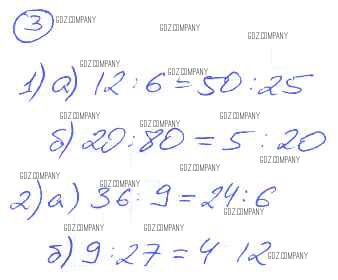 3
GDZ.COMPANY GDZ.COMPANY GDZ.COMPANY
GDZ.COMPANY GDZ.COMPANY
1) а) 12 : 6 = 50 : 25
GDZ.COMPANY GDZ.COMPANY GDZ.COMPANY
б) 20 : 80 = 5 : 20
GDZ.COMPANY GDZ.COMPANY GDZ.COMPANY
2) а) 36 : 9 = 24 : 6
GDZ.COMPANY GDZ.COMPANY GDZ.COMPANY
б) 9 : 27 = 4 12
GDZ.COMPANY GDZ.COMPANY